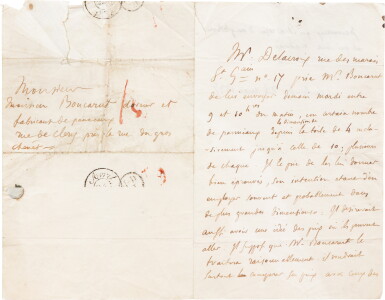 Monsieur
Monsieur Boucarut doreur et
fabricant de panneaux
rue de Cléry près la rue du gros
chenet
Mr Delacroix rue des marais
St Gain n° 17 prie Mr Boucarut
de lui envoyer demain mardi entre
9 et 10 hres du matin, un certain nombre
de panneaux depuis la toile de 4
jusqu'à celle de 10; plusieurs
de chaque. Il le prie de les lui donner
bien éprouvés, son intention étant d'en
employer souvent et probablement dans
de plus grandes dimensions. Il désirerait
aussi avoir une idée des prix où ils peuvent
aller. Il suppose que Mr Boucarut le
traitera raisonnablement et voudrait